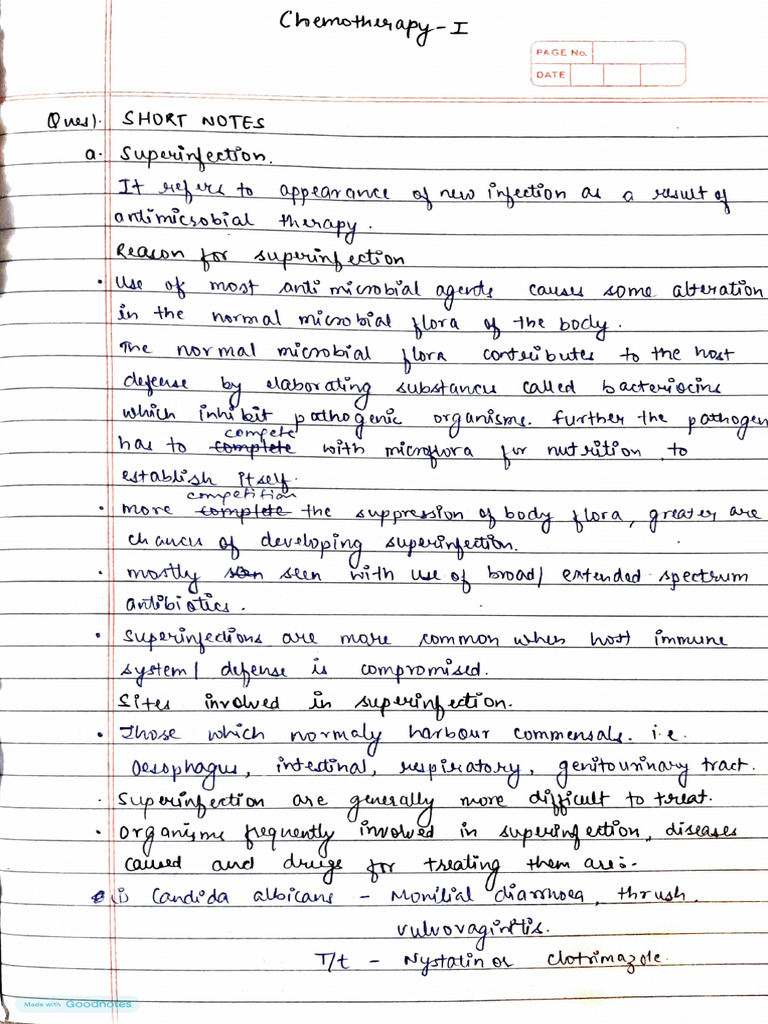 Chemotherapy - I
PAGE No.
DATE
Ques). SHORT NOTES
a. Superinfection.
It refers to appearance of new infection as a result of
antimicrobial therapy.
Reason for superinfection
• Use of most anti microbial agents causes some alteration
in the normal microbial flora of the body.
The normal microbial flora contributes to the host
defense by elaborating substances called bacteriocins
which inhibit pathogenic organisms. further the pathogen
compete
has to complete with microflora for nutrition, to
establish itself.
competition
• more complete the suppression of body flora, greater are
chances of developing superinfection.
• mostly seen seen with use of broad/ extended spectrum
antibiotics.
• Superinfections are more common when host immune
system/ defense is compromised.
Sites involved in superinfection.
• Those which normaly harbour commensals. i.e.
Oesophagus, intestinal, respiratory, genitourinary tract.
• Superinfection are generally more difficult to treat.
• Organisms frequently involved in superinfection, diseases
caused and drugs for treating them are:-
(i) Candida albicans - Monilial diarrhoea, thrush,
vulvovaginitis.
T/t - Nystatin or Clotrimazole.
Made with Goodnotes